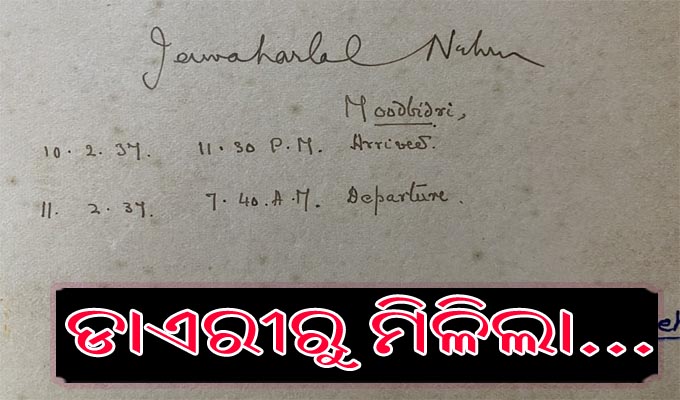 Jawaharlal Nehru
Moodbidri,
10. 2. 37. 11. 30 P.M. Arrived.
11. 2. 37. 7. 40. A.M. Departure.
ଡାଏରୀରୁ ମିଳିଲା...